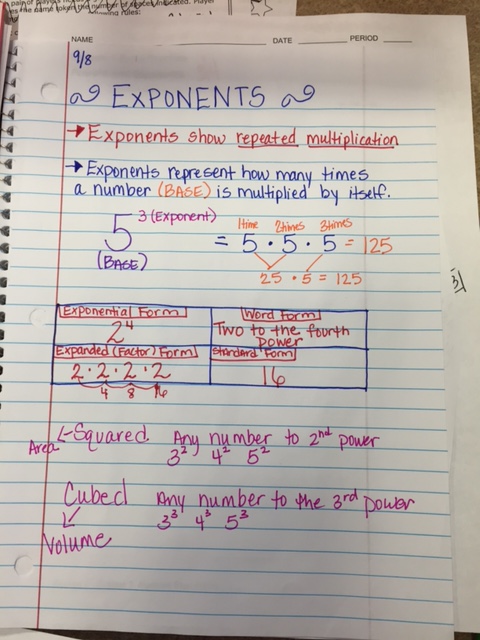 pain of players
indicated. Player
NAME DATE PERIOD
9/8
EXPONENTS
→ Exponents show repeated multiplication
→ Exponents represent how many times
a number (BASE) is multiplied by itself.
5 3 (Exponent) = 5 · 5 · 5 = 125
1time 2times 3times
(BASE)
25 · 5 = 125
Exponential Form
2⁴
Word Form
Two to the fourth
power
Expanded (Factor) Form
2 · 2 · 2 · 2
4 8 16
Standard Form
16
Squared Any number to 2nd power
Area
3² 4² 5²
Cubed Any number to the 3rd power
3³ 4³ 5³
Volume